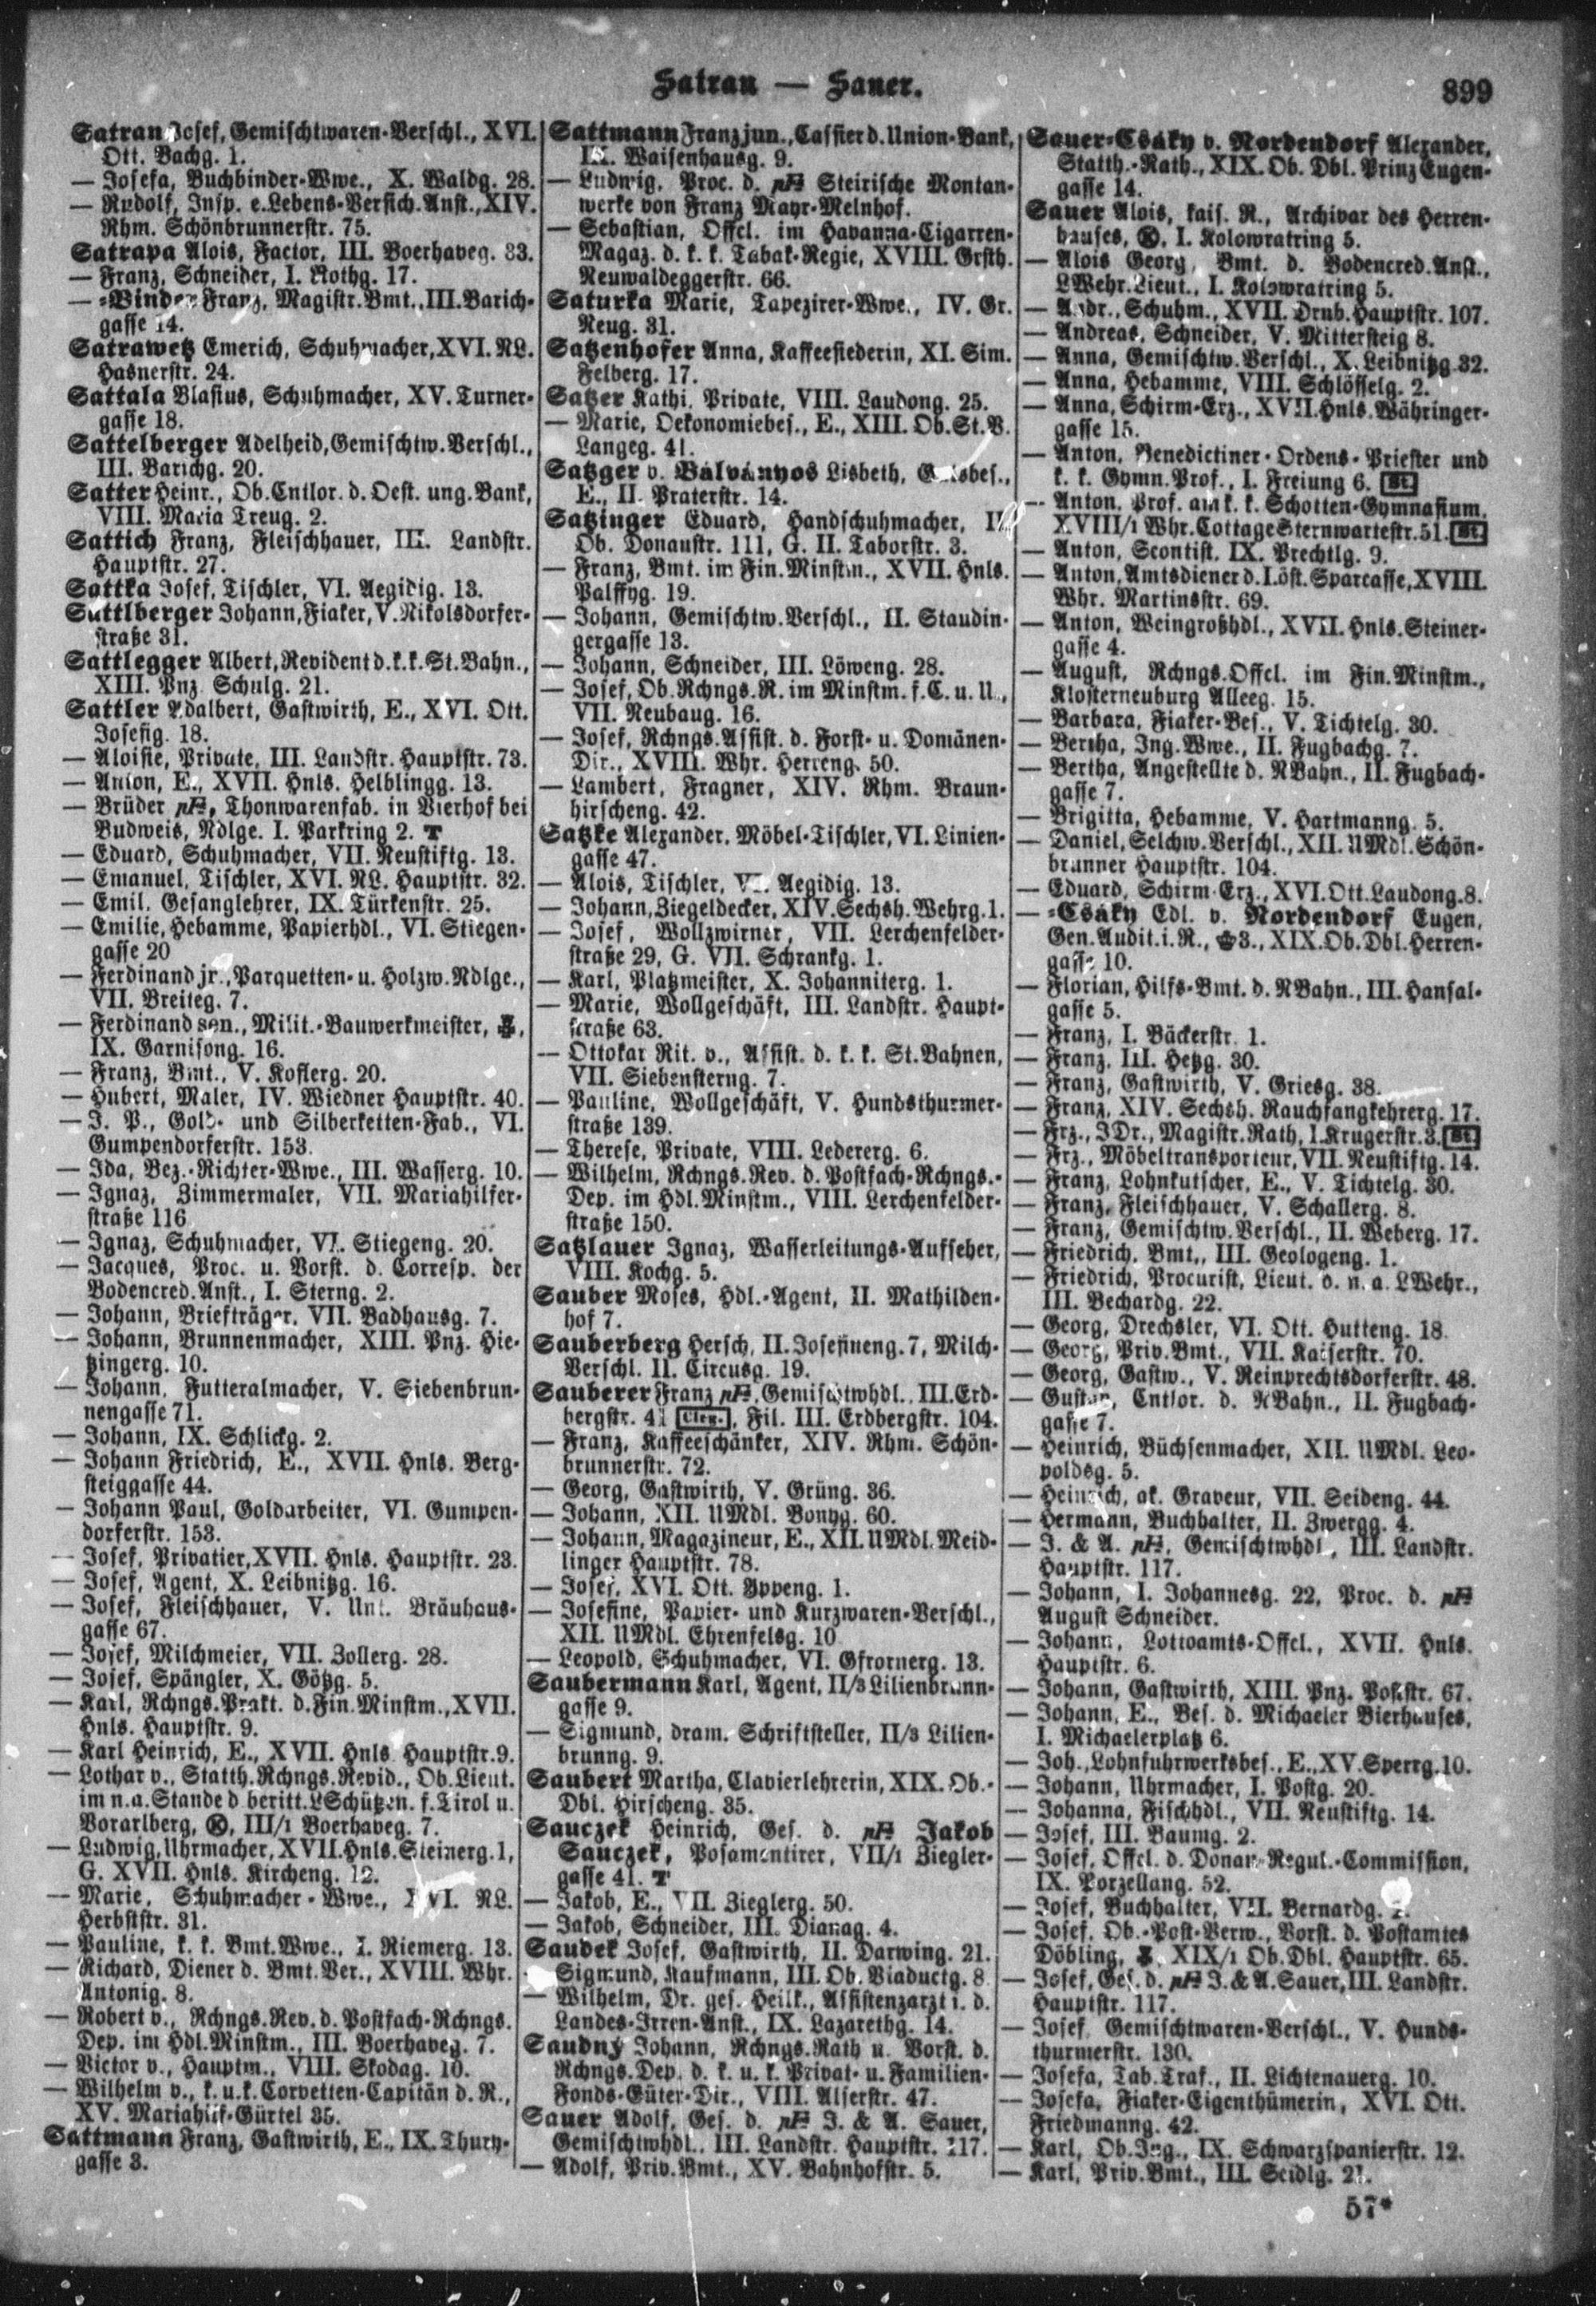 Satran — Sauer.
899
Satran Josef, Gemischtwaren-Verschl., XVI.
Ott. Bachg. 1.
— Josefa, Buchbinder-Wwe., X. Waldg. 28.
— Rudolf, Insp. e. Lebens-Versich. Anst., XIV.
Rhm. Schönbrunnerstr. 75.
Satrapa Alois, Factor, III. Boerhaveg. 33.
— Franz, Schneider, I. Rothg. 17.
— -Binder Franz, Magistr. Bmt., III. Barich-
gasse 14.
Satrawetz Emerich, Schuhmacher, XVI. NL.
Hasnerstr. 24.
Sattala Blasius, Schuhmacher, XV. Turner-
gasse 18.
Sattelberger Adelheid, Gemischtw. Verschl.,
III. Barichg. 20.
Satter Heinr., Ob. Cntlor. d. Oest. ung. Bank,
VIII. Maria Treug. 2.
Sattich Franz, Fleischhauer, III. Landstr.
Hauptstr. 27.
Sattka Josef, Tischler, VI. Aegidig. 13.
Sattlberger Johann, Fiaker, V. Nikolsdorfer-
straße 31.
Sattlegger Albert, Revident d. k. k. St. Bahn.,
XIII. Pnz. Schulg. 21.
Sattler Adalbert, Gastwirth, E., XVI. Ott.
Josefig. 18.
— Aloisie, Private, III. Landstr. Hauptstr. 73.
— Anton, E., XVII. Hnls. Helblingg. 13.
— Brüder pH, Thonwarenfab. in Vierhof bei
Budweis, Ndlge. I. Parkring 2. T
— Eduard, Schuhmacher, VII. Neustiftg. 13.
— Emanuel, Tischler, XVI. NL. Hauptstr. 32.
— Emil, Gesanglehrer, IX. Türkenstr. 25.
— Emilie, Hebamme, Papierhdl., VI. Stiegen-
gasse 20
— Ferdinand jr., Parquetten- u. Holzw. Ndlge.,
VII. Breiteg. 7.
— Ferdinand sen., Milit.-Bauwerkmeister,
IX. Garnisong. 16.
— Franz, Bmt., V. Koflerg. 20.
— Hubert, Maler, IV. Wiedner Hauptstr. 40.
— J. P., Gold- und Silberketten-Fab., VI.
Gumpendorferstr. 153.
— Ida, Bez.-Richter-Wwe., III. Wasserg. 10.
— Ignaz, Zimmermaler, VII. Mariahilfer-
straße 116
— Ignaz, Schuhmacher, VI. Stiegeng. 20.
— Jacques, Proc. u. Vorst. d. Corresp. der
Bodencred. Anst., I. Sterng. 2.
— Johann, Briefträger, VII. Badhausg. 7.
— Johann, Brunnenmacher, XIII. Pnz. Hie-
tzingerg. 10.
— Johann, Futteralmacher, V. Siebenbrun-
nengasse 71.
— Johann, IX. Schlickg. 2.
— Johann Friedrich, E., XVII. Hnls. Berg-
steiggasse 44.
— Johann Paul, Goldarbeiter, VI. Gumpen-
dorferstr. 153.
— Josef, Privatier, XVII. Hnls. Hauptstr. 23.
— Josef, Agent, X. Leibnitzg. 16.
— Josef, Fleischhauer, V. Unt. Bräuhaus-
gasse 67.
— Josef, Milchmeier, VII. Zollerg. 28.
— Josef, Spängler, X. Götzg. 5.
— Karl, Rchngs. Prakt. d. Fin. Minstm., XVII.
Hnls. Hauptstr. 9.
— Karl Heinrich, E., XVII. Hnls. Hauptstr. 9.
— Lothar v., Statth. Rchngs. Revid., Ob. Lieut.
im n. a. Stande d. beritt. LSchützen. f. Tirol u.
Vorarlberg, III/1 Boerhaveg. 7.
— Ludwig, Uhrmacher, XVII. Hnls. Steinerg. 1,
G. XVII. Hnls. Kircheng. 12.
— Marie, Schuhmacher-Wwe., XVI. NL.
Herbststr. 31.
— Pauline, k. k. Bmt. Wwe., I. Riemerg. 13.
— Richard, Diener d. Bmt. Ver., XVIII. Whr.
Antonig. 8.
— Robert v., Rchngs. Rev. d. Postfach-Rchngs.
Dep. im Hdl. Minstm., III. Boerhaveg. 7.
— Victor v., Hauptm., VIII. Skodag. 10.
— Wilhelm v., k. u. k. Corvetten-Capitän d. R.,
XV. Mariahilf-Gürtel 35.
Sattmann Franz, Gastwirth, E., IX. Thury-
gasse 3.
Sattmann Franz jun., Cassier d. Union-Bank,
IX. Waisenhausg. 9.
— Ludwig, Proc. d. pH Steirische Montan-
werke von Franz Mayr-Melnhof.
— Sebastian, Offcl. im Havanna-Cigarren-
Magaz. d. k. k. Tabak-Regie, XVIII. Grsth.
Neuwaldeggerstr. 66.
Saturka Marie, Tapezirer-Wwe., IV. Gr.
Neug. 31.
Satzenhofer Anna, Kaffeesiederin, XI. Sim.
Felberg. 17.
Satzer Kathi, Private, VIII. Laudong. 25.
— Marie, Oekonomiebes., E., XIII. Ob. St. V.
Langeg. 41.
Satzger v. Balványos Lisbeth, Gutsbes.,
E., II. Praterstr. 14.
Satzinger Eduard, Handschuhmacher,
Ob. Donaustr. 111, G. II. Taborstr. 3.
— Franz, Bmt. im Fin. Minstm., XVII. Hnls.
Palffyg. 19.
— Johann, Gemischtw. Verschl., II. Staudin-
gergasse 13.
— Johann, Schneider, III. Löweng. 28.
— Josef, Ob. Rchngs. R. im Minstm. f. C. u. U.,
VII. Neubaug. 16.
— Josef, Rchngs. Assist. d. Forst- u. Domänen-
Dir., XVIII. Whr. Herreng. 50.
— Lambert, Fragner, XIV. Rhm. Braun-
hirscheng. 42.
Satzke Alexander, Möbel-Tischler, VI. Linien-
gasse 47.
— Alois, Tischler, VI. Aegidig. 13.
— Johann, Ziegeldecker, XIV. Sechsh. Wehrg. 1.
— Josef, Wollzwirner, VII. Lerchenfelder-
straße 29, G. VII. Schrankg. 1.
— Karl, Platzmeister, X. Johanniterg. 1.
— Marie, Wollgeschäft, III. Landstr. Haupt-
straße 63.
— Ottokar Rit. v., Assist. d. k. k. St. Bahnen,
VII. Siebensterng. 7.
— Pauline, Wollgeschäft, V. Hundsthurmer-
straße 139.
— Therese, Private, VIII. Ledererg. 6.
— Wilhelm, Rchngs. Rev. d. Postfach-Rchngs.-
Dep. im Hdl. Minstm., VIII. Lerchenfelder-
straße 150.
Satzlauer Ignaz, Wasserleitungs-Aufseher,
VIII. Kochg. 5.
Sauber Moses, Hdl.-Agent, II. Mathilden-
hof 7.
Sauberberg Hersch, II. Josefineng. 7, Milch-
Verschl. II. Circusg. 19.
Sauberer Franz pH, Gemischtwhdl., III. Erd-
bergstr. 41 Clrg., Fil. III. Erdbergstr. 104.
— Franz, Kaffeeschänker, XIV. Rhm. Schön-
brunnerstr. 72.
— Georg, Gastwirth, V. Grüng. 36.
— Johann, XII. UMdl. Bonyg. 60.
— Johann, Magazineur, E., XII. UMdl. Meid-
linger Hauptstr. 78.
— Josef, XVI. Ott. Yppeng. 1.
— Josefine, Papier- und Kurzwaren-Verschl.,
XII. UMdl. Ehrenfelsg. 10
— Leopold, Schuhmacher, VI. Gfrornerg. 13.
Saubermann Karl, Agent, II/3 Lilienbrunn-
gasse 9.
— Sigmund, dram. Schriftsteller, II/3 Lilien-
brunng. 9.
Saubert Martha, Clavierlehrerin, XIX. Ob.-
Dbl. Hirscheng. 35.
Sauczek Heinrich, Ges. d. pH Jakob
Sauczek, Posamentirer, VII/1 Ziegler-
gasse 41. T
— Jakob, E., VII. Zieglerg. 50.
— Jakob, Schneider, III. Dianag. 4.
Saudek Josef, Gastwirth, II. Darwing. 21.
Sigmund, Kaufmann, III. Ob. Viaductg. 8
— Wilhelm, Dr. ges. Heilk., Assistenzarzt i. d.
Landes-Irren-Anst., IX. Lazarethg. 14.
Saudny Johann, Rchngs. Rath u. Vorst. d.
Rchngs. Dep. d. k. u. k. Privat- u. Familien-
Fonds-Güter-Dir., VIII. Alserstr. 47.
Sauer Adolf, Ges. d. pH J. & A. Sauer,
Gemischtwhdl., III. Landstr. Hauptstr. 117.
— Adolf, Priv. Bmt., XV. Bahnhofstr. 5.
Sauer-Csáky v. Nordendorf Alexander,
Statth.-Rath., XIX. Ob. Dbl. Prinz Eugen-
gasse 14.
Sauer Alois, kais. R., Archivar des Herren-
hauses, I. Kolowratring 5.
— Alois Georg, Bmt. d. Bodencred. Anst.,
LWehr. Lieut., I. Kolowratring 5.
— Andr., Schuhm., XVII. Drnb. Hauptstr. 107.
— Andreas, Schneider, V. Mittersteig 8.
— Anna, Gemischtw. Verschl., X. Leibnitzg. 32.
— Anna, Hebamme, VIII. Schlösselg. 2.
— Anna, Schirm-Erz., XVII. Hnls. Währinger-
gasse 15.
— Anton, Benedictiner-Ordens-Priester und
k. k. Gymn. Prof., I. Freiung 6. St.
— Anton, Prof. am k. k. Schotten-Gymnasium,
XVIII/1 Whr. Cottage Sternwartestr. 51. St.
— Anton, Scontist, IX. Prechtlg. 9.
— Anton, Amtsdiener d. I. öst. Sparcasse, XVIII.
Whr. Martinsstr. 69.
— Anton, Weingroßhdl., XVII. Hnls. Steiner-
gasse 4.
— August, Rchngs. Offcl. im Fin. Minstm.,
Klosterneuburg Alleeg. 15.
— Barbara, Fiaker-Bes., V. Tichtelg. 30.
— Bertha, Ing. Wwe., II. Fugbachg. 7.
— Bertha, Angestellte d. NBahn., II. Fugbach-
gasse 7.
— Brigitta, Hebamme, V. Hartmanng. 5.
— Daniel, Selchw. Verschl., XII. UMdl. Schön-
brunner Hauptstr. 104.
— Eduard, Schirm-Erz., XVI. Ott. Laudong. 8.
— -Csáky Edl. v. Nordendorf Eugen,
Gen. Audit. i. R., 3., XIX. Ob. Dbl. Herren-
gasse 10.
— Florian, Hilfs-Bmt. d. NBahn., III. Hansal-
gasse 5.
— Franz, I. Bäckerstr. 1.
— Franz, III. Hetzg. 30.
— Franz, Gastwirth, V. Griesg. 38.
— Franz, XIV. Sechsh. Rauchfangkehrerg. 17.
— Frz., JDr., Magistr. Rath, I. Krugerstr. 3. St.
— Frz., Möbeltransporteur, VII. Neustiftg. 14.
— Franz, Lohnkutscher, E., V. Tichtelg. 30.
— Franz, Fleischhauer, V. Schallerg. 8.
— Franz, Gemischtw. Verschl., II. Weberg. 17.
— Friedrich, Bmt., III. Geologeng. 1.
— Friedrich, Procurist, Lieut. d. n. a. LWehr.,
III. Bechardg. 22.
— Georg, Drechsler, VI. Ott. Hutteng. 18.
— Georg, Priv. Bmt., VII. Kaiserstr. 70.
— Georg, Gastw., V. Reinprechtsdorferstr. 48.
— Gustav, Cntlor. d. NBahn., II. Fugbach-
gasse 7.
— Heinrich, Büchsenmacher, XII. UMdl. Leo-
poldsg. 5.
— Heinrich, ak. Graveur, VII. Seideng. 44.
— Hermann, Buchhalter, II. Zwergg. 4.
— J. & A. pH, Gemischtwhdl., III. Landstr.
Hauptstr. 117.
— Johann, I. Johannesg. 22, Proc. d. pH
August Schneider.
— Johann, Lottoamts-Offcl., XVII. Hnls.
Hauptstr. 6.
— Johann, Gastwirth, XIII. Pnz. Poststr. 67.
— Johann, E., Bes. d. Michaeler Bierhauses,
I. Michaelerplatz 6.
— Joh., Lohnfuhrwerksbes., E., XV. Sperrg. 10.
— Johann, Uhrmacher, I. Postg. 20.
— Johanna, Fischhdl., VII. Neustiftg. 14.
— Josef, III. Baumg. 2.
— Josef, Offcl. d. Donau-Regul.-Commission,
IX. Porzellang. 52.
— Josef, Buchhalter, VII. Bernardg.
— Josef, Ob.-Post-Verw., Vorst. d. Postamtes
Döbling, XIX/1 Ob. Dbl. Hauptstr. 65.
— Josef, Ges. d. pH J. & A. Sauer, III. Landstr.
Hauptstr. 117.
— Josef, Gemischtwaren-Verschl., V. Hunds-
thurmerstr. 130.
— Josefa, Tab. Traf., II. Lichtenauerg. 10.
— Josefa, Fiaker-Eigenthümerin, XVI. Ott.
Friedmanng. 42.
— Karl, Ob. Ing., IX. Schwarzspanierstr. 12.
— Karl, Priv. Bmt., III. Seidlg. 21.
57*